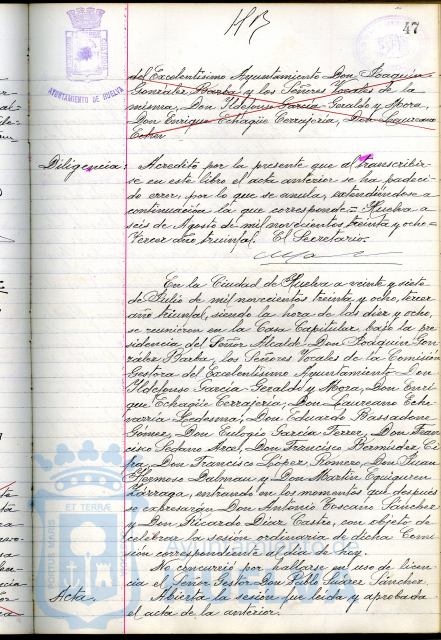 47
AYUNTAMIENTO DE HUELVA
del Excelentísimo Ayuntamiento Don Joaquín
González Barba y los Señores Vocales de la
misma, Don Ildefonso García-Geraldo y Mora,
Don Enrique Echagüe Cerrajería, Don Laureano
Eche
Diligencia: Acredito por la presente que al transcribir-
se en este libro el acta anterior se ha padeci-
do error, por lo que se anula, extendiéndose a
continuación la que corresponde.= Huelva a
seis de Agosto de mil novecientos treinta y ocho=
Tercer año triunfal. El Secretario.
En la Ciudad de Huelva a veinte y siete
de Julio de mil novecientos treinta y ocho, tercer
año triunfal, siendo la hora de las diez y ocho,
se reunieron en la Casa Capitular bajo la pre-
sidencia del Señor Alcalde Don Joaquín Gon-
zález Barba, los Señores Vocales de la Comisión
Gestora del Excelentísimo Ayuntamiento Don
Ildefonso García-Geraldo y Mora, Don Enri-
que Echagüe Cerrajería, Don Laureano Eche
varría Ledesma, Don Eduardo Bassadone
Gómez, Don Eulogio García Ferrer, Don Fran-
cisco Sedano Arce, Don Francisco Bermúdez Ci-
fra, Don Francisco López Romero, Don Juan
Hermoso Dalmau y Don Martín Eguiguren
Lárraga, entrando en los momentos que después
se expresarán Don Antonio Toscano Sánchez
y Don Ricardo Díaz Castro, con objeto de
celebrar la sesión ordinaria de dicha Comi-
sión correspondiente al día de hoy.
No concurrió por hallarse en uso de licen-
cia el Señor Gestor Don Pablo Suárez Sánchez.
Acta. Abierta la sesión fue leída y aprobada
el acta de la anterior.
ET TERRÆ
PORTUS MARIS